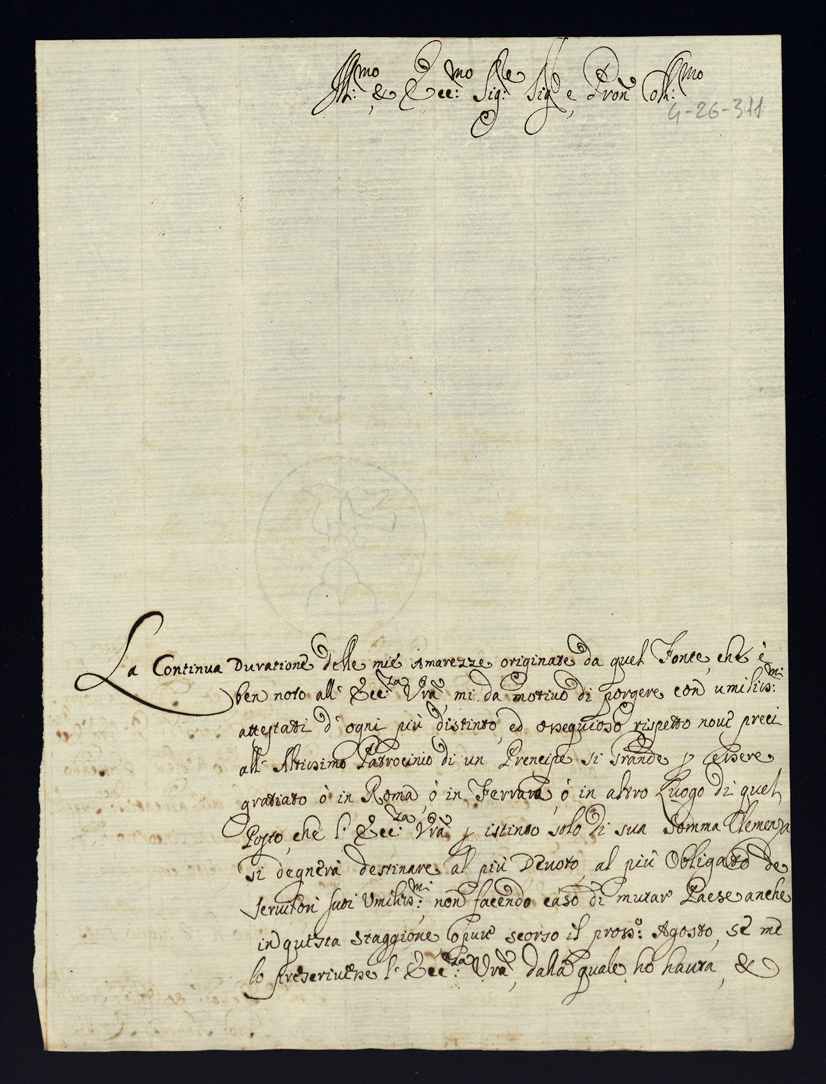 Ill:mo, & Ecc:mo Sig:re Sig:re, e Pron Oss:mo
4-26-311
La Continua Duratione delle mie Amarezze originate da quel Fonte, che è
ben noto all' Ecc:za Vra, mi da motivo di porgere con umiliss:mi
attestati d'ogni più distinto, ed ossequioso rispetto nove preci
all' Altissimo Patrocinio di un Prencipe si Grande p essere
gratiato ò in Roma, ò in Ferrara, ò in altro Luogo di quel
Posto, che l' Ecc:za Vra p istinto solo di sua Somma Clemenza
si degnerà destinare al più Devoto, al più Obligato de
servitori suoi Umiliss:mi non facendo caso di mutar Paese anche
in questa staggione, opure scorso il pross:o Agosto, se me
lo prescrivesse l' Ecc:za Vra, dalla quale ho hauta, &